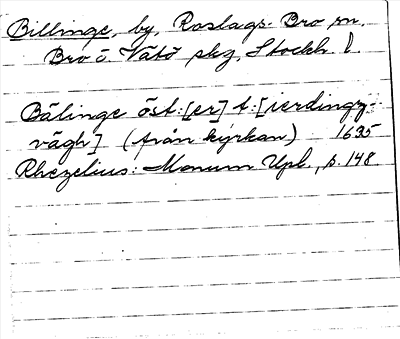 Billinge, by, Roslags-Bro sn,
Bro o. Vätö skg, Stockh. l.
Bälinge öst:[er] t:[ierdingz-
vägh] (från kyrkan) 1635
Rhezelius: Monum Upl, p. 148